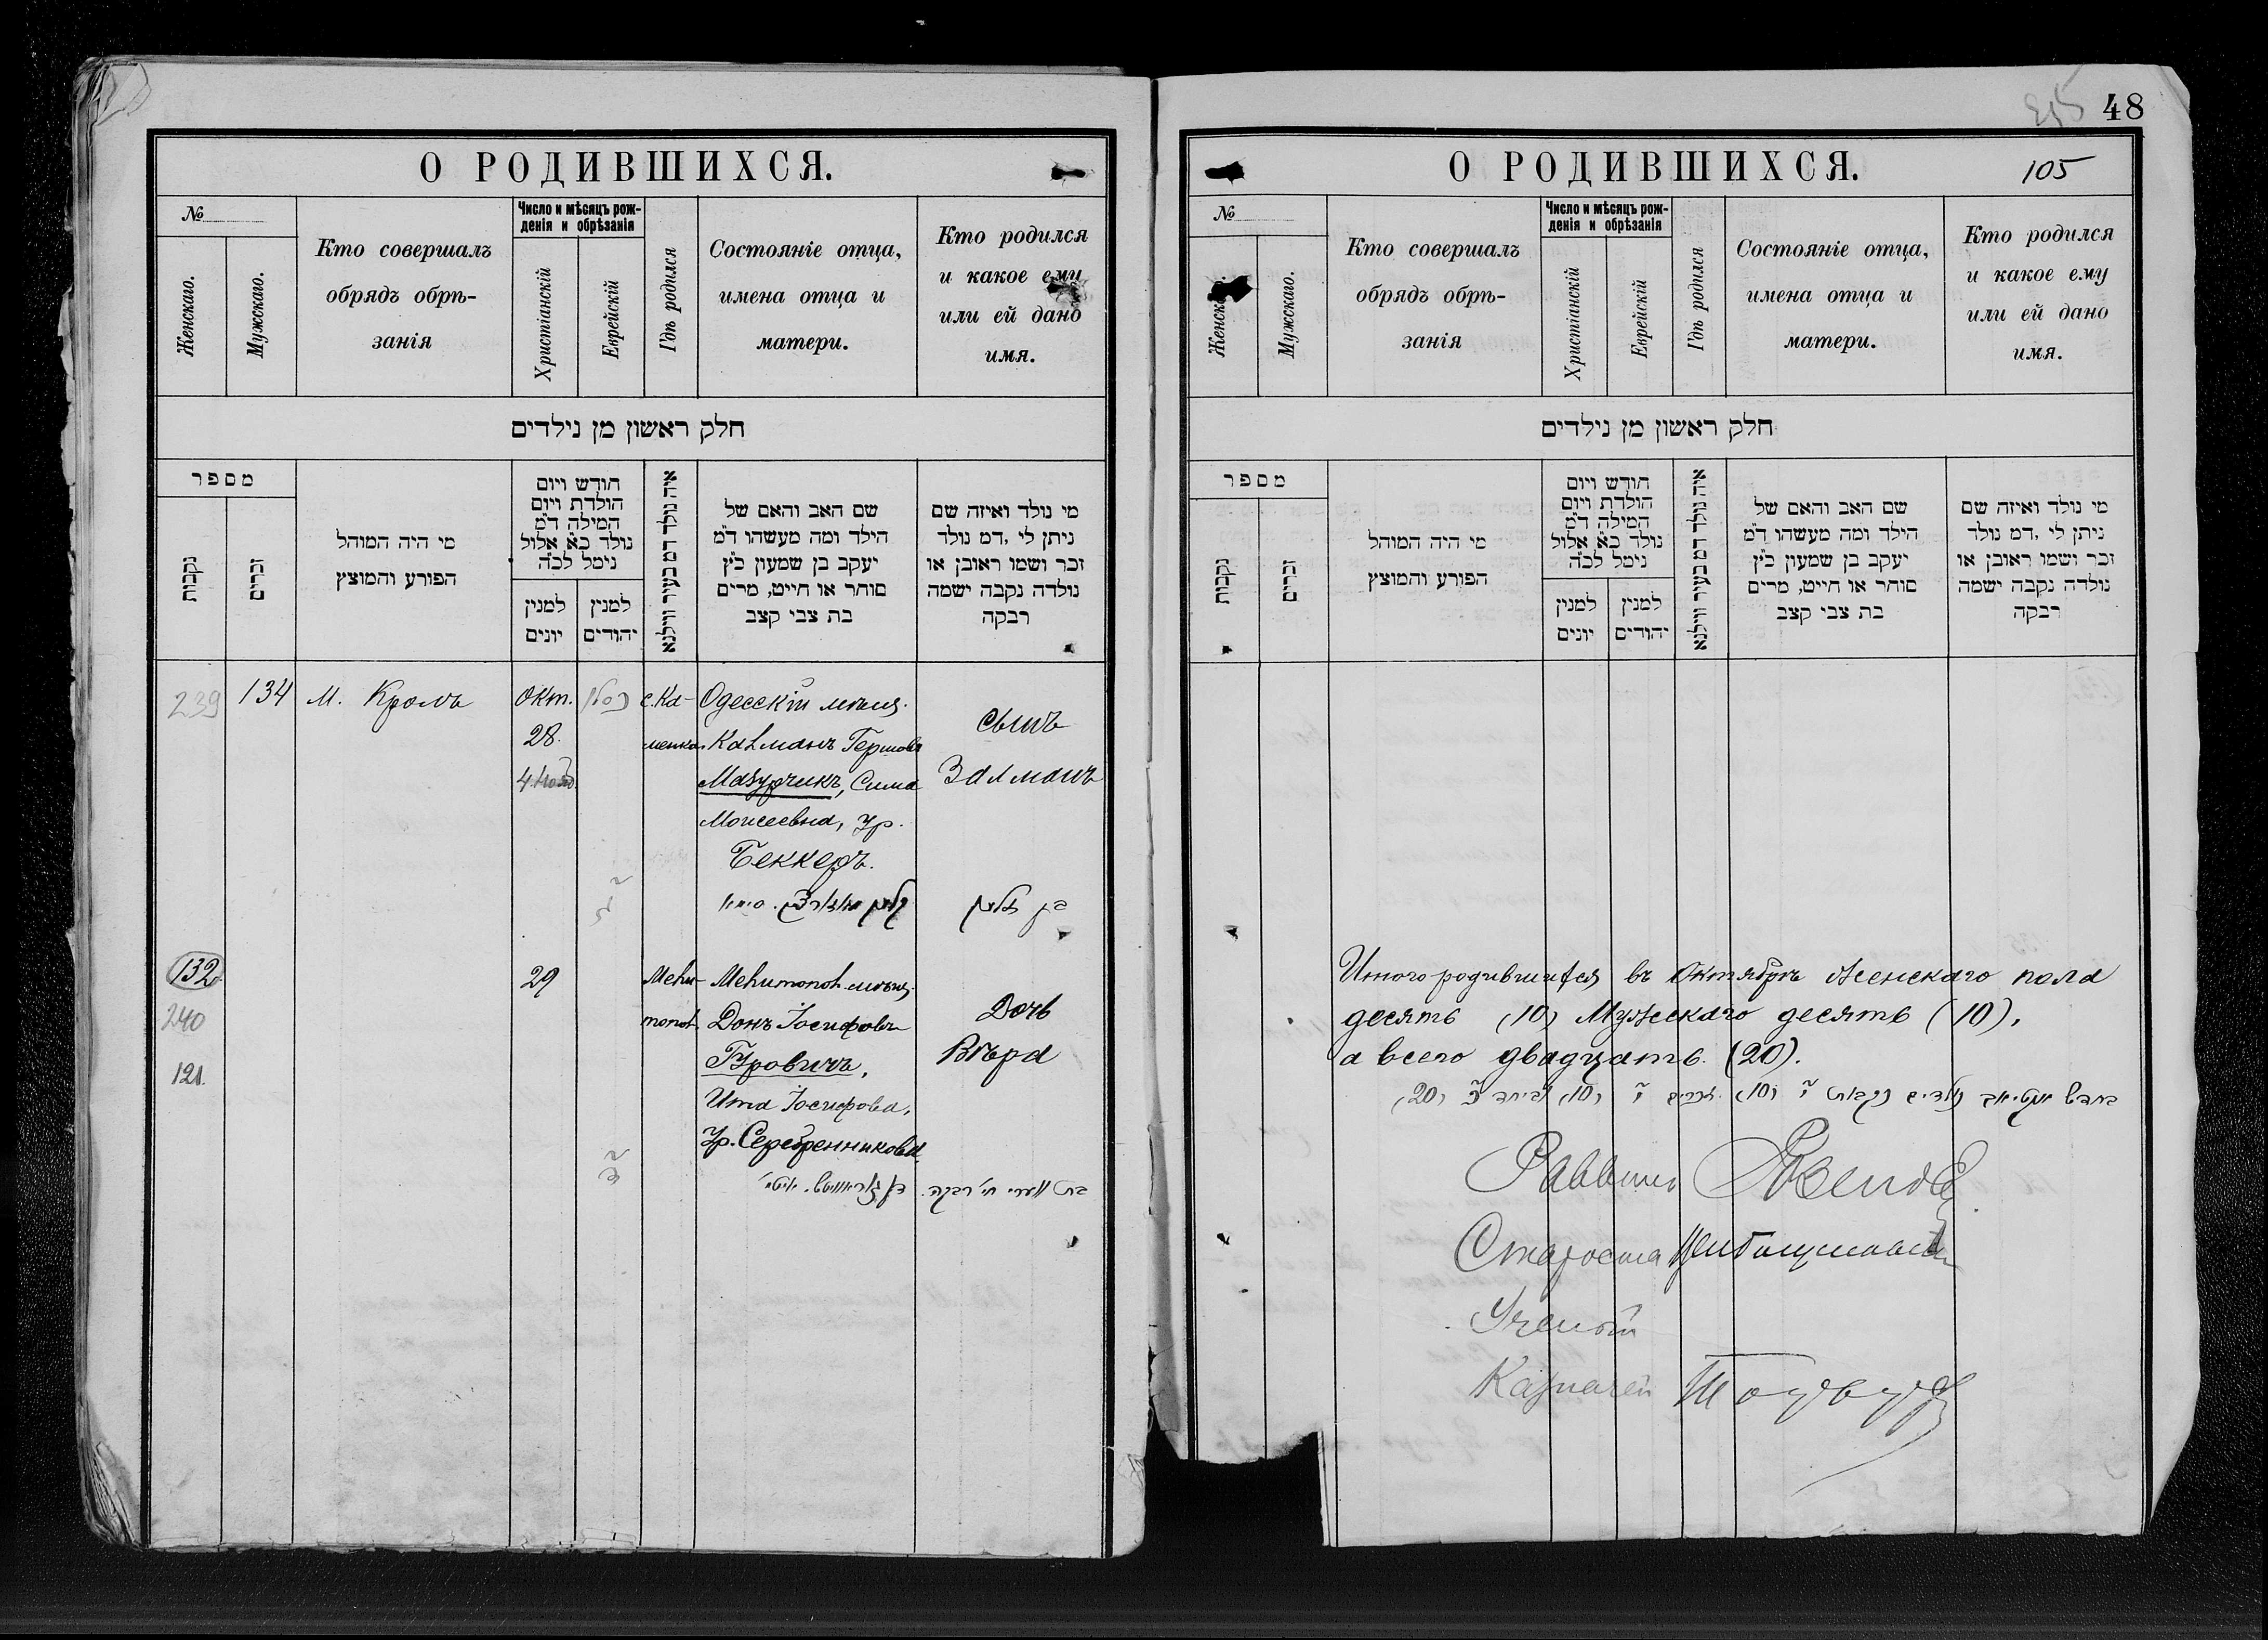 О РОДИВШИХСЯ.
№
Женскаго.
Мужскаго.
Кто совершалъ
обрядъ обрѣ-
занія
Число и мѣсяцъ рож-
денія и обрѣзанія
Христіанскій
Еврейскій
Гдѣ родился
Состояніе отца,
имена отца и
матери.
Кто родился
и какое ему
или ей дано
имя.
חלק ראשון מן נילדים
מספר
נקבות
זכרים
מי היה המוהל
הפורע והמוצץ
חודש ויום
הולדת ויום
המילה ד״מ
נולד כ״א אלול
נימל לכ״ה
למנין
יונים
למנין
יהודים
איה נולד דמ בעיר ווילנא
שם האב והאם של
הילד ומה מעשהו ד״מ
יעקב בן שמעון כ״ץ
סוחר או חייט, מרים
בת צבי קצב
מי נולד ואיזה שם
ניתן לי, דמ נולד
זכר ושמו ראובן או
נולדה נקבה ישמה
רבקה
239
134
М. Кроль
Окт.
28.
4 Нояб.
с. Ка-
менка
Одесскій мѣщ.
Калманъ Гершовъ
Мазурчикъ, Сима
Моисеевна, ур.
Беккеръ.
сынъ
Залманъ
בן זלמן
132
240
121.
29
Мели-
топол.
Мелитопол. мѣщ.
Донъ Іосифовъ
Гуровичъ,
Ита Іосифова,
ур. Серебренникова.
Дочь
Вѣра
48
О РОДИВШИХСЯ.
105
№
Женскаго.
Мужскаго.
Кто совершалъ
обрядъ обрѣ-
занія
Число и мѣсяцъ рож-
денія и обрѣзанія
Христіанскій
Еврейскій
Гдѣ родился
Состояніе отца,
имена отца и
матери.
Кто родился
и какое ему
или ей дано
имя.
חלק ראשון מן נילדים
מספר
נקבות
זכרים
מי היה המוהל
הפורע והמוצץ
חודש ויום
הולדת ויום
המילה ד״מ
נולד כ״א אלול
נימל לכ״ה
למנין
יונים
למנין
יהודים
איה נולד דמ בעיר ווילנא
שם האב והאם של
הילד ומה מעשהו ד״מ
יעקב בן שמעון כ״ץ
סוחר או חייט, מרים
בת צבי קצב
מי נולד ואיזה שם
ניתן לי, דמ נולד
זכר ושמו ראובן או
נולדה נקבה ישמה
רבקה
Итого родившихся въ Октябрѣ Женскаго пола
десять (10) Мужскаго десять (10),
а всего двадцать. (20).
Раввинъ
Староста
Ученый
Казначей